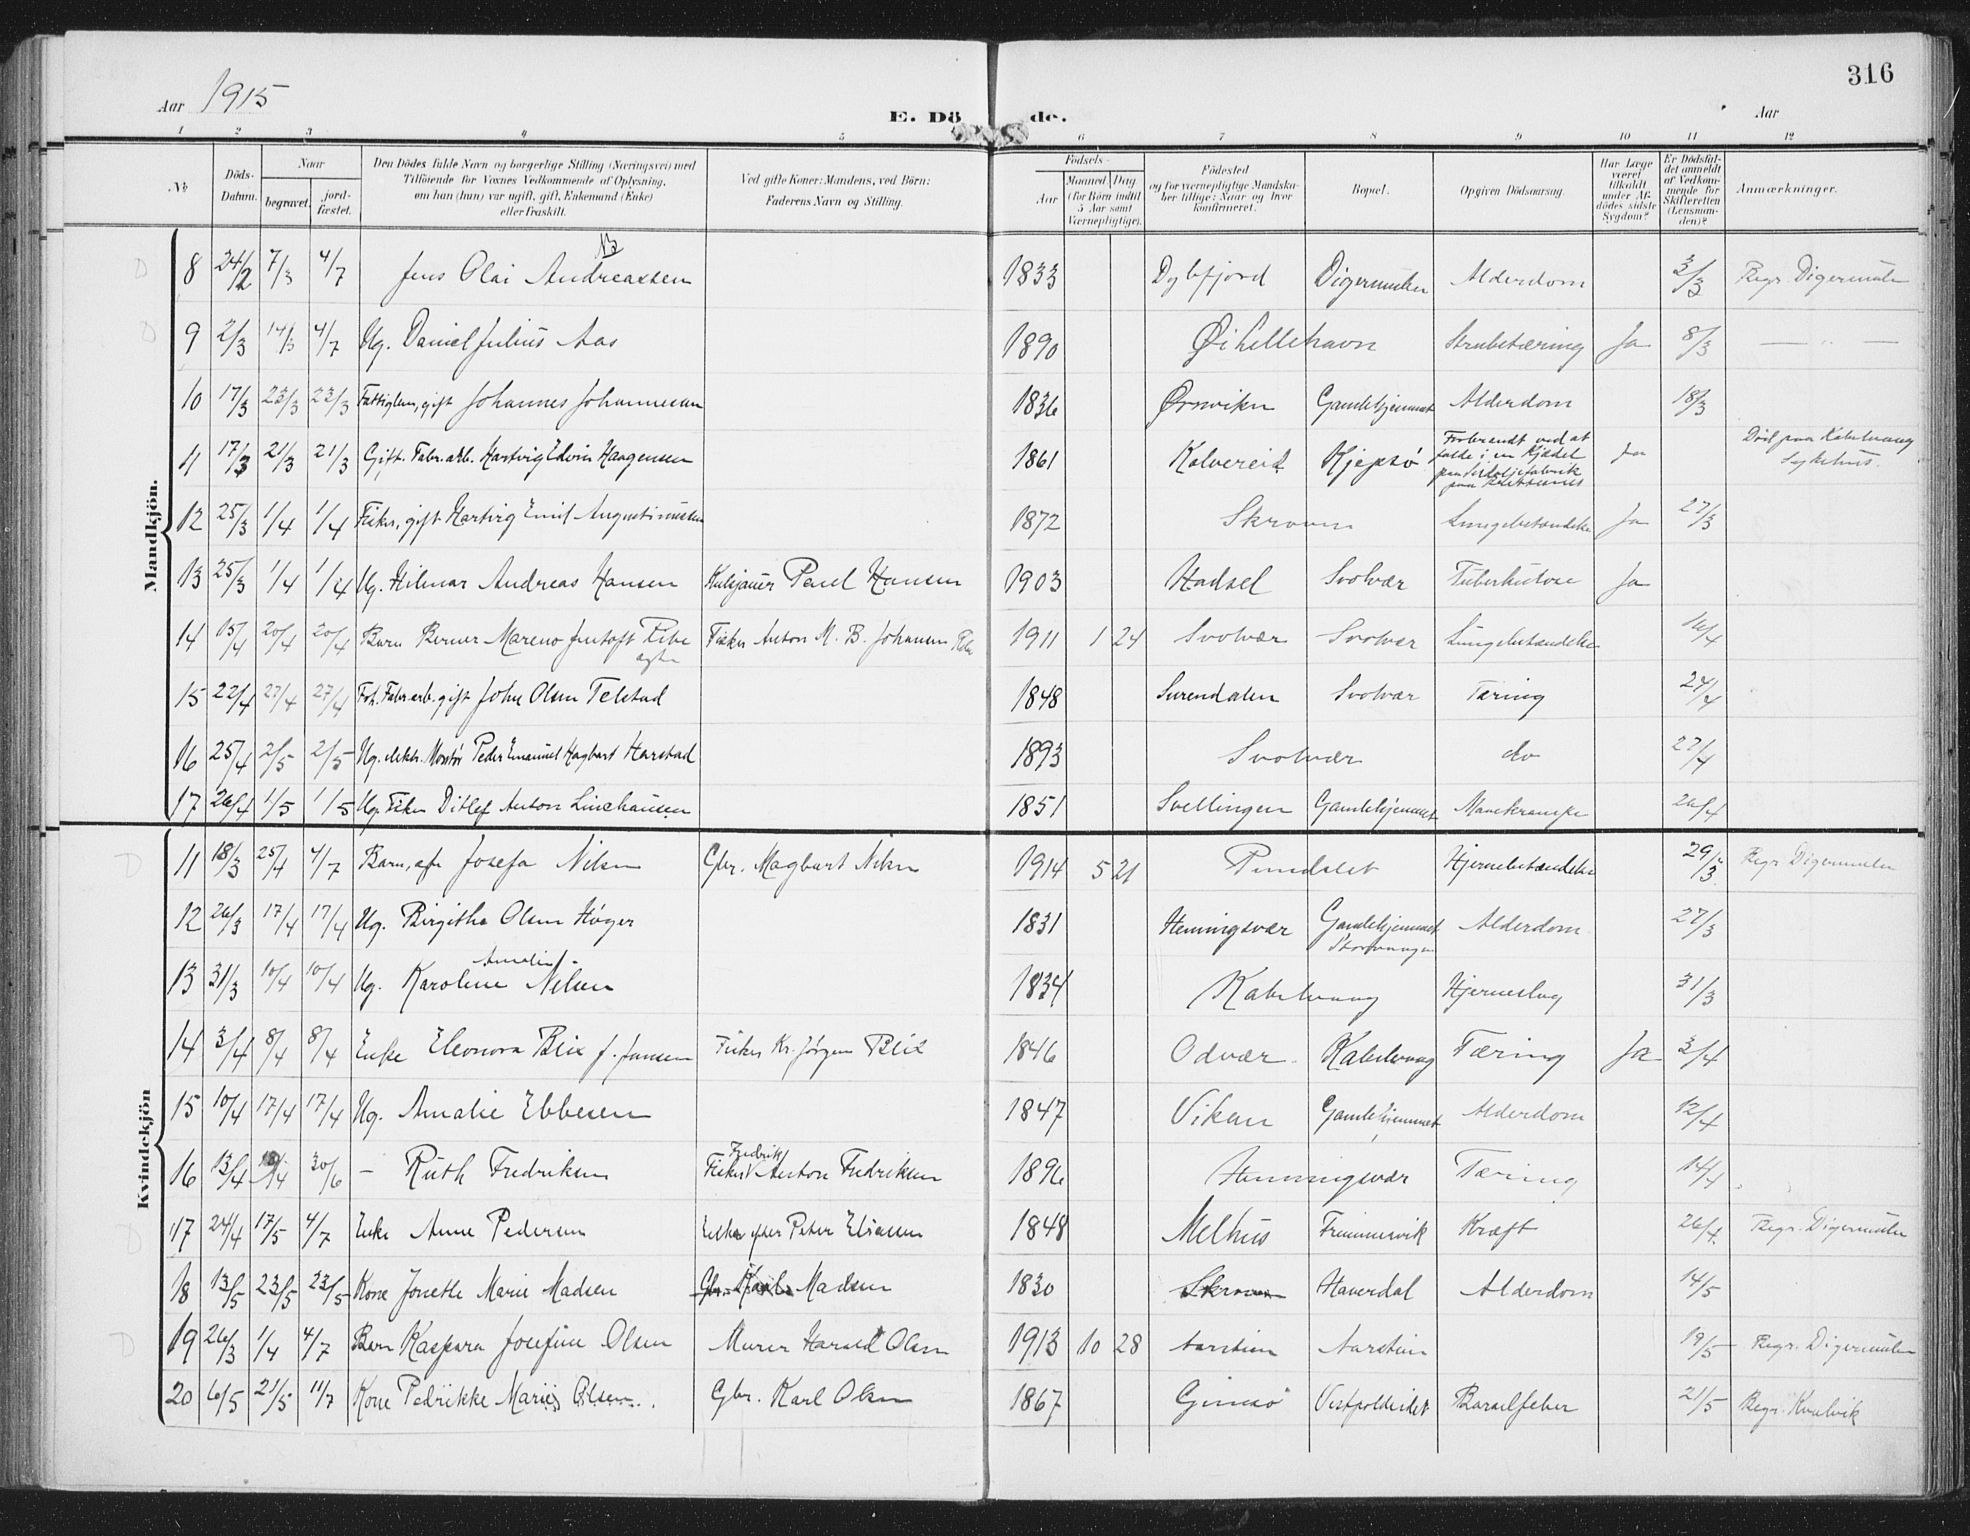 316
Aar 1915
E. Dö de.
Aar
1 2 3 4 5 6 7 8 9 10 11 12
No
Döds-Datum.
Naar
begravet.
jord-fæstet.
Den Dödes fulde Navn og borgerlige Stilling (Næringsvei) med
Tilföiende for Voxnes Vedkommende af Oplysning,
om han (hun) var ugift, gift, Enkemand (Enke)
eller fraskilt.
Ved gifte Koner: Mandens, ved Börn:
Faderens Navn og Stilling.
Födsels-
Aar
Maaned Dag
(for Börn indtil
5 Aar samt
Værnepligtige).
Födested
og for værnepligtige Mandska-
ber tillige: Naar og hvor
konfirmeret.
Bopæl.
Opgiven Dödsaarsag.
Har Læge
været
tilkaldt
under Af-
dödes sidste
Sygdom?
Er Dödsfal-
det anmeldt
af Vedkom-
mende for
Skifteretten
(Lensman-
den)?
Anmærkninger.
Mandkjön.
8 24/2 7/3 4/7 Jens Olai Andreassen 1833 Dybfjord Digermulen Alderdom 3/3 Begr. Digermulen
9 2/3 14/3 4/7 Ug. Daniel Julius Aas 1890 Øihellehavn Strubetæring Ja 8/3 — " —
10 17/3 23/3 23/3 Fattiglem, gift Johannes Johannesen 1836 Ørsviken Gamlehjemmet Alderdom 18/3
11 17/3 21/3 21/3 Gift. Fabr.arb. Hartvig Edvin Haagensen 1861 Kolvereid Kjepsø Forbrandt ved at falde i en Kjedel paa Sildoljefabrik paa Ja Död paa Kabelvaag Sykehus.
12 25/3 1/4 1/4 Fisker, gift Hartvig Emil Augustinussen 1872 Skroven Lungebetændelse Ja 27/3
13 25/3 1/4 1/4 Ug. Hilmar Andreas Hansen Paul Hansen 1903 Hadsel Svolvær Tuberkulose Ja
14 15/4 20/4 20/4 Barn Berner Mareno Jentoft Ribe Fisker Anton M. B. Johansen Ribe 1911 1 24 Svolvær Svolvær Lungebetændelse 16/4
ægte
15 22/4 27/4 27/4 Fabr.arb. gift John Olsen Telstad 1848 Surendalen Svolvær Tæring 24/4
16 25/4 2/5 2/5 Ug. elektr. Montør Peder Emanuel Hagbart Harstad 1893 Svolvær do 27/4
17 26/4 1/5 1/5 Ug. Fisker Ditlef Anton Linehausen 1851 Svellingen Gamlehjemmet Mavekrampe 26/4
Kvindekjön
11 18/3 25/4 4/7 Barn, Josefa Nilsen Gbr. Magbart Nilsen 1914 5 21 Pundslet Hjernebetændelse 29/3 Begr. Digermulen
12 26/3 17/4 17/4 Ug. Birgitha Olsen Høyer 1831 Henningsvær Gamlehjemmet Storvaagen Alderdom 27/3
Amalie
13 31/3 10/4 10/4 Ug. Karoline Nilsen 1834 Kabelvaag Hjerneslag 31/3
14 3/4 8/4 8/4 Enke Eleonora Blix f. Jansen Fisker Kr. Jørgen Blix 1846 Odvær Kabelvaag Tæring Ja 3/4
15 10/4 17/4 17/4 Ug. Amalie Ebbesen 1847 Vikan Gamlehjemmet Alderdom 12/4
Fredrik
16 13/4 30/6 — Ruth Fredriksen Fisker Anton Fredriksen 1896 Henningsvær Tæring 14/4
17 24/4 17/5 4/7 Enke Anne Pedersen Enke efter Peter Eliassen 1848 Melhus Fremmervik Kræft 26/4 Begr. Digermulen
18 13/5 23/5 23/5 Kone Jonette Marie Madsen Gbr. Karl Madsen 1830 Skroven Haverdal Alderdom 14/5
19 26/3 1/4 4/7 Barn Kaspara Josefine Olsen Murer Harald Olsen 1913 10 28 Aarstein Aarstein 19/5 Begr. Digermulen
20 6/5 21/5 11/7 Kone Pedrikke Marie Olsen Gbr. Karl Olsen 1867 Gimsø Vestpolleidet Barselfeber 21/5 Begr. Kvalvik